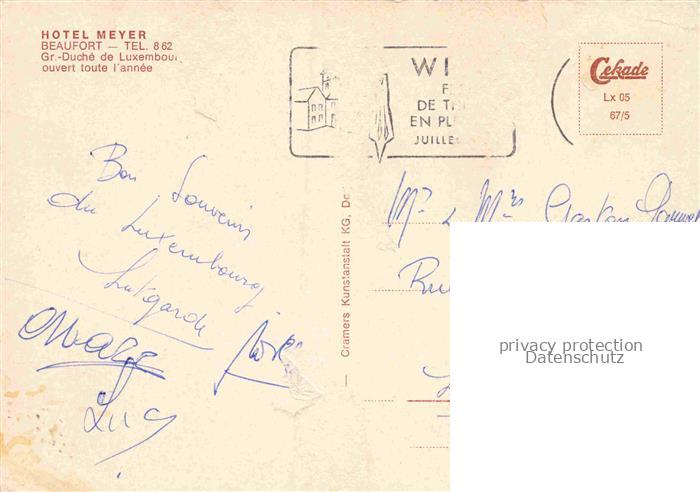 HOTEL MEYER
BEAUFORT — TEL. 862
Gr.-Duché de Luxembour
ouvert toute l'année
WI
F
DE TH
EN PL
JUILLE
Cekade
Lx 05
67/5
Bon Souvenir
du Luxembourg
Lutgarde
Luc
— Cramers Kunstanstalt KG, Do
Mr & Mme Gaston
Ru
privacy protection
Datenschutz